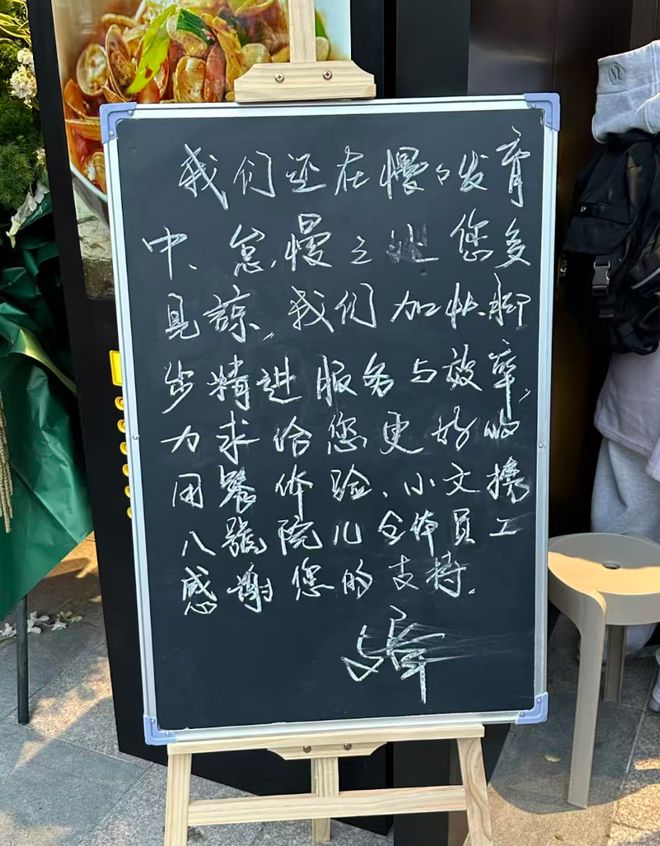 我们还在慢々发育
中、怠慢之处您多
見諒、我们加快脚
步精进服务与效率,
力求给您更好的
用餐体验、小文携
八號院儿全体员工
感謝您的支持.